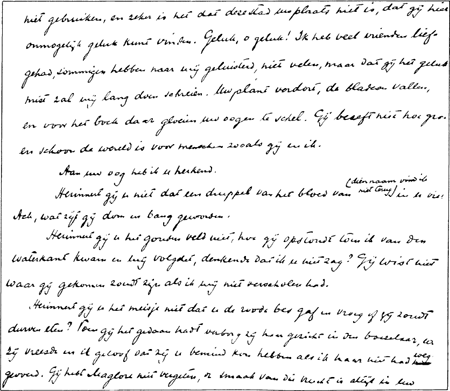 niet gebruiken, en zeker is het dat deze stad uw plaats niet is, dat gij hier
onmogelijk geluk kunt vinden. Geluk, o geluk! Ik heb veel vrienden lief
gehad, sommigen hebben naar mij geluisterd, niet velen, maar dat gij het geluk
mist zal mij lang doen schreien. Uw plant verdort, de bladeren vallen,
en voor het boek daar gloeien uw oogen te schel. Gij beseft niet hoe groot
en schoon de wereld is voor menschen zooals gij en ik.
Aan uw oog heb ik u herkend.
Herinnert gij u niet dat een druppel van het bloed van (dien naam vind ik niet terug) in u
Ach, wat zijt gij dom en bang geworden.
Herinnert gij u het gouden veld niet, hoe gij opstondt toen ik van den
waterkant kwam en mij volgdet, denkende dat ik u niet zag? Gij wist niet
waar gij gekomen zoudt zijn als ik mij niet verscholen had.
Herinnert gij u het meisje niet dat u de roode bes gaf en vroeg of gij zoudt
durven eten? Toen gij het gedaan hadt verborg zij haar gezicht in den
zij vreesde en ik geloof dat zij u bemind kon hebben als ik haar niet had weg
gevoerd. Gij hebt niet vergeten, de smaak van die vrucht is altijd in uw